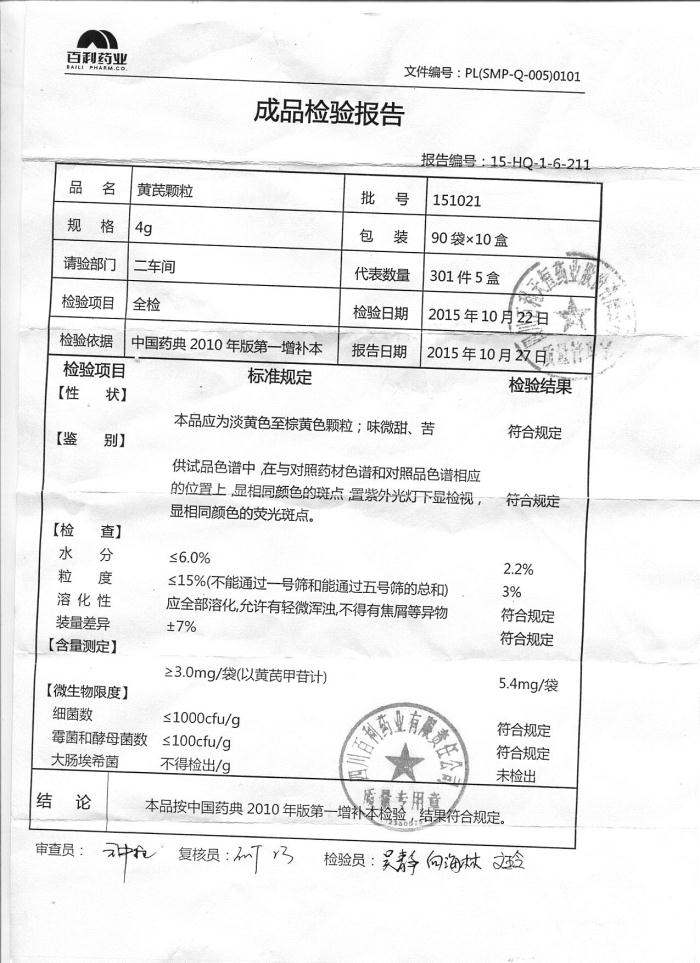 百利药业
BAILI PHARM.CO.
文件编号：PL(SMP-Q-005)0101
成品检验报告
报告编号：15-HQ-1-6-211
品 名 黄芪颗粒 批 号 151021
规 格 4g 包 装 90袋×10盒
请验部门 二车间 代表数量 301件5盒
检验项目 全检 检验日期 2015年10月22日
检验依据 中国药典2010年版第一增补本 报告日期 2015年10月27日
检验项目 标准规定 检验结果
【性 状】
本品应为淡黄色至棕黄色颗粒；味微甜、苦 符合规定
【鉴 别】
供试品色谱中,在与对照药材色谱和对照品色谱相应
的位置上,显相同颜色的斑点,置紫外光灯下显检视， 符合规定
显相同颜色的荧光斑点。
【检 查】
水 分 ≤6.0% 2.2%
粒 度 ≤15%(不能通过一号筛和能通过五号筛的总和) 3%
溶 化 性 应全部溶化,允许有轻微浑浊,不得有焦屑等异物 符合规定
装量差异 ±7% 符合规定
【含量测定】
≥3.0mg/袋(以黄芪甲苷计) 5.4mg/袋
【微生物限度】
细菌数 ≤1000cfu/g 符合规定
霉菌和酵母菌数 ≤100cfu/g 符合规定
大肠埃希菌 不得检出/g 未检出
四川百利药业有限责任公司
质量专用章
结 论 本品按中国药典2010年版第一增补本检验，结果符合规定。
审查员： 复核员： 检验员：吴静 向海林